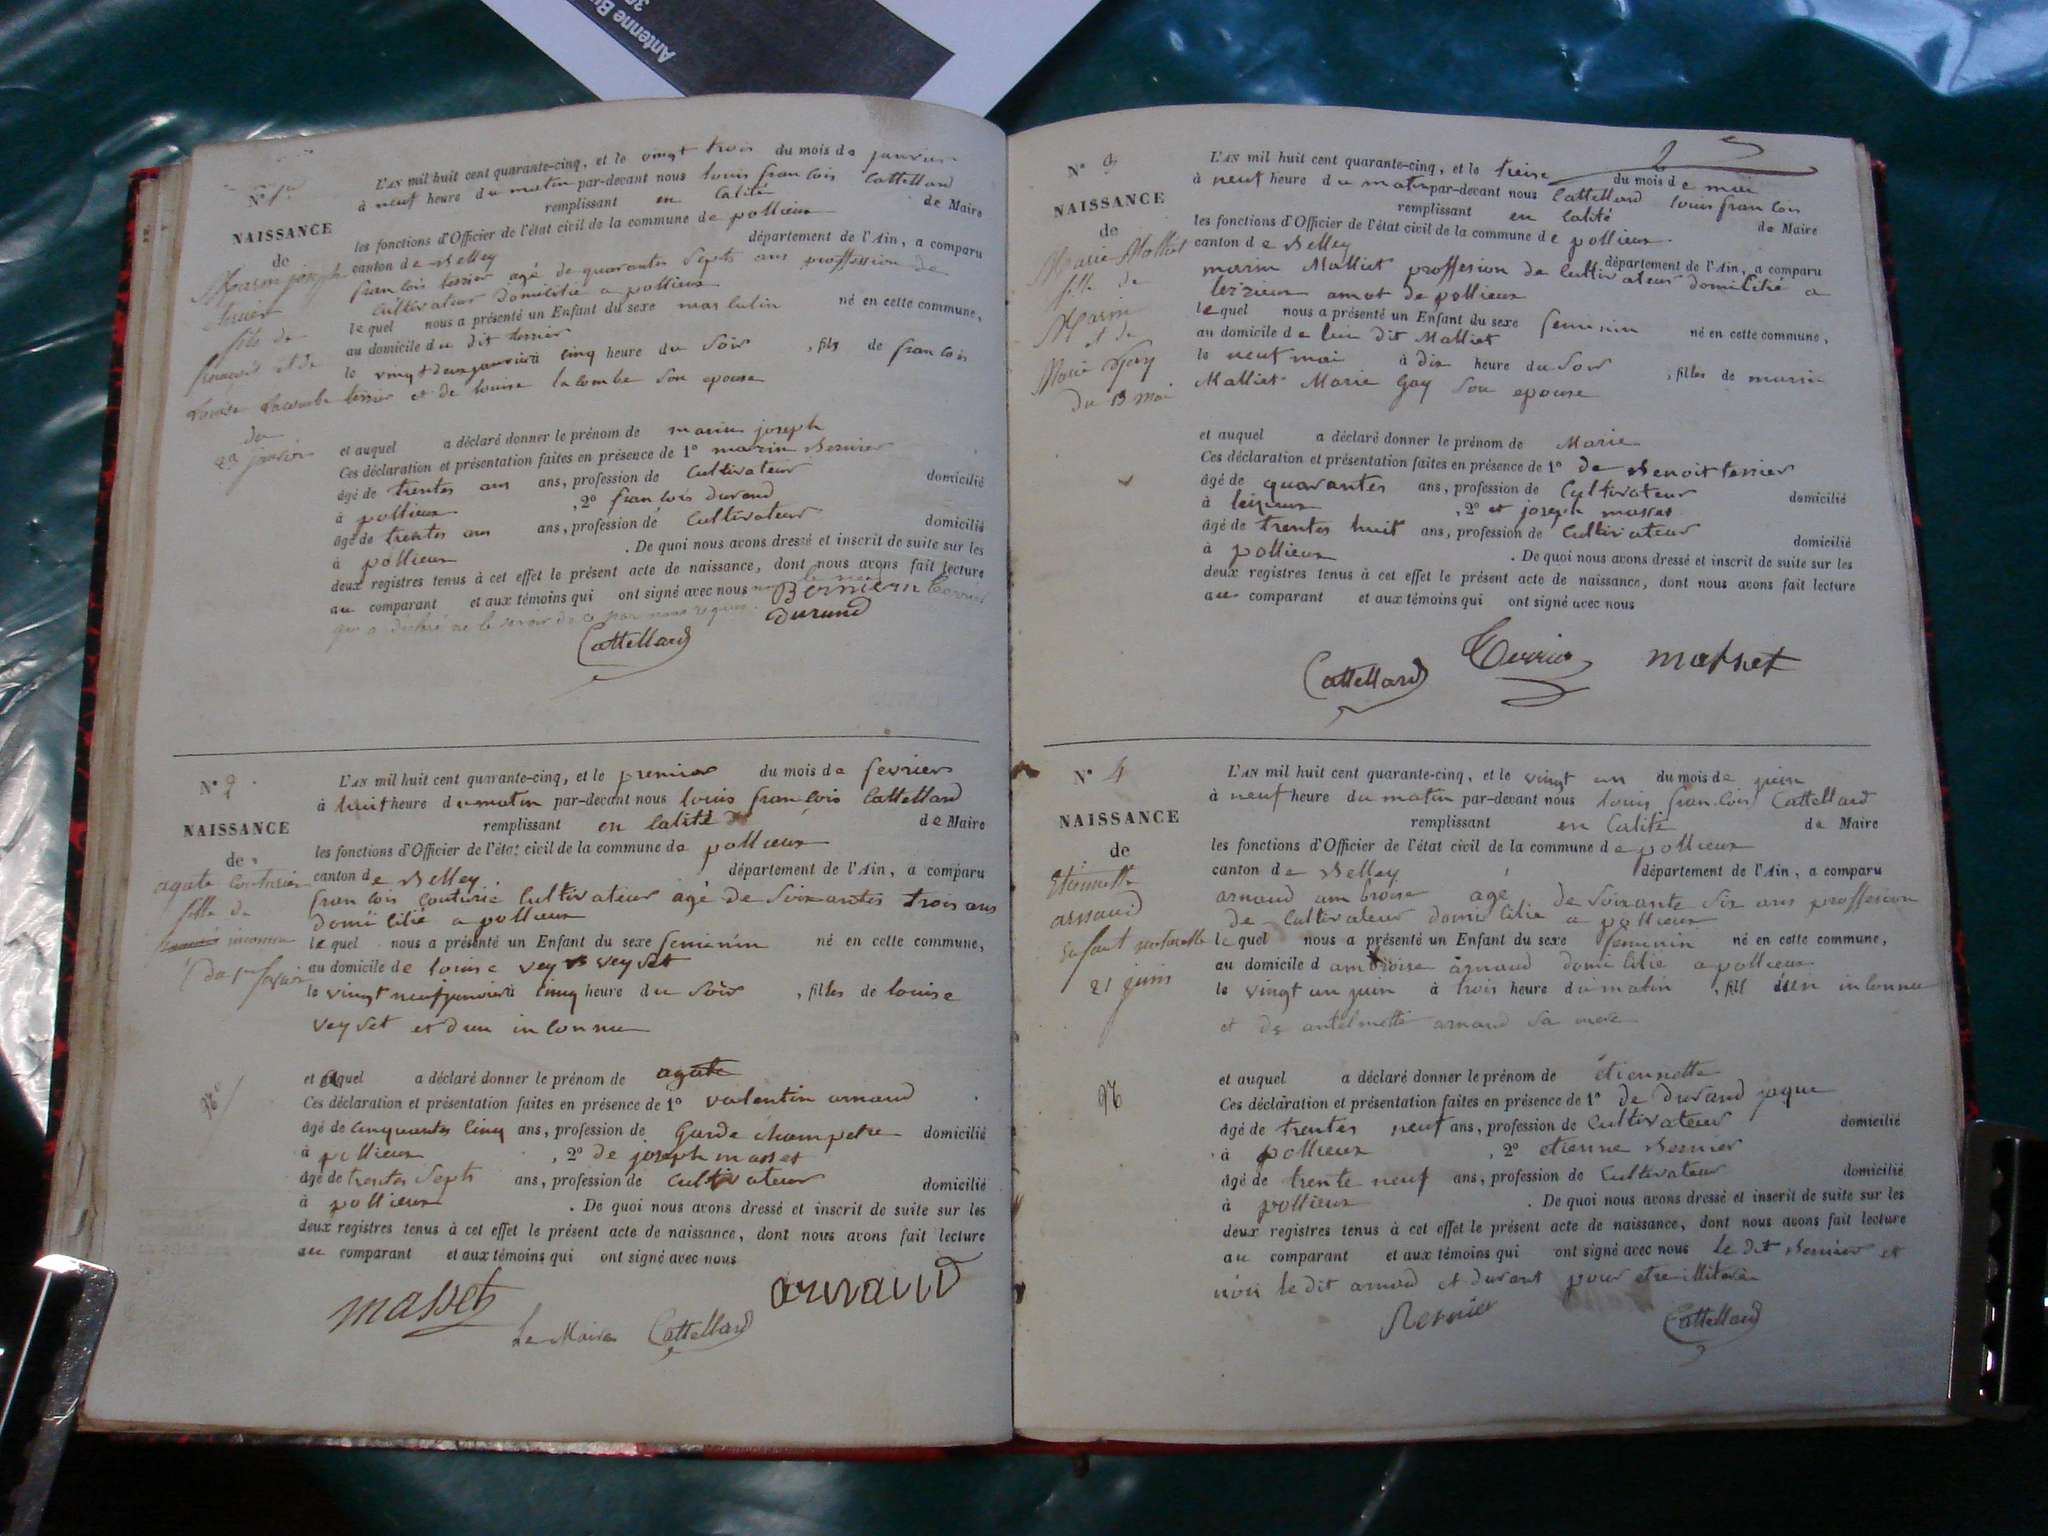 Antenne Bu
N° 1er
NAISSANCE
de
Marin joseph
terrier
fils de
françois et de
Louise Lacombe
du
23 janvier
L'AN mil huit cent quarante-cinq, et le vingt trois du mois de janvier
à neuf heure du matin par-devant nous louis francois Cattelland
remplissant en calité de Maire
les fonctions d'Officier de l'état civil de la commune de pollieux
canton de Belley département de l'Ain, a comparu
francois terrier agé de quarantes septs ans proffession de
cultivateur domicilié a pollieux
lequel nous a présenté un Enfant du sexe masculin né en cette commune,
au domicile du dit terrier
le vingt deux janvier à cinq heure du soir , fils de francois
terrier et de louise lacombe son epouse
et auquel a déclaré donner le prénom de marin joseph
Ces déclaration et présentation faites en présence de 1° marin Bernier
âgé de trentes ans ans, profession de cultivateur domicilié
à pollieux , 2° francois durand
âgé de trentes ans ans, profession de cultivateur domicilié
à pollieux . De quoi nous avons dressé et inscrit de suite sur les
deux registres tenus à cet effet le présent acte de naissance, dont nous avons fait lecture
au comparant et aux témoins qui ont signé avec nous
qui a déclaré ne le savoir de ce par nous requis.
Bernier
durand
Cattelland
N° 2
NAISSANCE
de
agate couturier
fille de
inconnu
du 1er fevrier
L'AN mil huit cent quarante-cinq, et le premier du mois de fevrier
à huit heure du matin par-devant nous louis francois Cattelland
remplissant en calité de Maire
les fonctions d'Officier de l'état civil de la commune de pollieux
canton de Belley département de l'Ain, a comparu
francois couturié cultivateur agé de soixantes trois ans
domicilié a pollieux
lequel nous a présenté un Enfant du sexe feminin né en cette commune,
au domicile de louise veyset
le vingt neuf janvier à cinq heure du soir , filles de louise
veyset et dun inconnu
et auquel a déclaré donner le prénom de agate
Ces déclaration et présentation faites en présence de 1° valentin arnaud
âgé de cinquantes cinq ans, profession de garde champetre domicilié
à pollieux , 2° de joseph masset
âgé de trentes septs ans, profession de cultivateur domicilié
à pollieux . De quoi nous avons dressé et inscrit de suite sur les
deux registres tenus à cet effet le présent acte de naissance, dont nous avons fait lecture
au comparant et aux témoins qui ont signé avec nous
masset Le Maire Cattelland arnaud
2
N° 3
NAISSANCE
de
Marie Molliet
fille de
Marin
et de
Marie Gay
du 13 mai
L'AN mil huit cent quarante-cinq, et le treise du mois de mai
à neuf heure du matin par-devant nous Cattelland louis francois
remplissant en calité de Maire
les fonctions d'Officier de l'état civil de la commune de pollieux
canton de Belley département de l'Ain, a comparu
marin Molliet proffesion de cultivateur domicilié a
leizieux amot de pollieux
lequel nous a présenté un Enfant du sexe feminin né en cette commune,
au domicile de lui dit Molliet
le neuf mai à dix heure du soir , filles de marin
Molliet Marie Gay son epouse
et auquel a déclaré donner le prénom de Marie
Ces déclaration et présentation faites en présence de 1° de Benoit terrier
âgé de quarantes ans, profession de cultivateur domicilié
à leizieux , 2° et joseph masset
âgé de trentes huit ans, profession de cultivateur domicilié
à pollieux . De quoi nous avons dressé et inscrit de suite sur les
deux registres tenus à cet effet le présent acte de naissance, dont nous avons fait lecture
au comparant et aux témoins qui ont signé avec nous
Cattelland Terrier masset
N° 4
NAISSANCE
de
Etiennette
arnaud
enfant naturelle
21 juin
L'AN mil huit cent quarante-cinq, et le vingt un du mois de juin
à neuf heure du matin par-devant nous louis francois Cattelland
remplissant en calité de Maire
les fonctions d'Officier de l'état civil de la commune de pollieux
canton de Belley département de l'Ain, a comparu
arnaud ambroise agé de soixante six ans proffession
de cultivateur domicilié a pollieux
lequel nous a présenté un Enfant du sexe feminin né en cette commune,
au domicile d ambroise arnaud domicilié a pollieux
le vingt un juin à trois heure du matin , fill d'un inconnu
et de antelmette arnaud sa mere
et auquel a déclaré donner le prénom de étiennette
Ces déclaration et présentation faites en présence de 1° de durand jaque
âgé de trentes neuf ans, profession de cultivateur domicilié
à pollieux , 2° etienne Bernier
âgé de trente neuf ans, profession de cultivateur domicilié
à pollieux . De quoi nous avons dressé et inscrit de suite sur les
deux registres tenus à cet effet le présent acte de naissance, dont nous avons fait lecture
au comparant et aux témoins qui ont signé avec nous le dit Bernier et
non le dit arnaud et durant pour etre illitéré
Bernier Cattelland